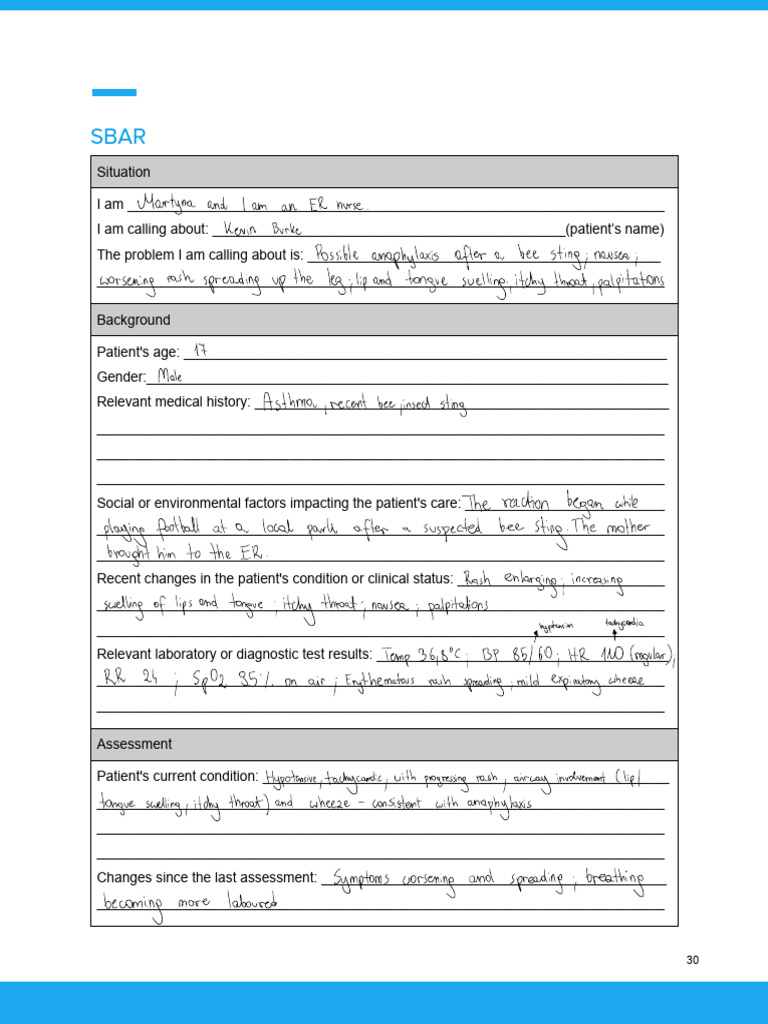 SBAR
Situation
I am Martyna and I am an ER nurse.
I am calling about: Kevin Burke (patient's name)
The problem I am calling about is: Possible anaphylaxis after a bee sting; nausea;
worsening rash spreading up the leg; lip and tongue swelling; itchy throat, palpitations
Background
Patient's age: 17
Gender: Male
Relevant medical history: Asthma, recent bee/insect sting
Social or environmental factors impacting the patient's care: The reaction began while
playing football at a local park after a suspected bee sting. The mother
brought him to the ER.
Recent changes in the patient's condition or clinical status: Rash enlarging; increasing
swelling of lips and tongue; itchy throat; nausea; palpitations
hypotension tachycardia
Relevant laboratory or diagnostic test results: Temp 36,8°C; BP 85/60; HR 110 (regular);
RR 24 ; SpO2 95% on air; Erythematous rash spreading; mild expiratory wheeze
Assessment
Patient's current condition: Hypotensive, tachycardic, with progressing rash, airway involvement (lip/
tongue swelling, itchy throat) and wheeze - consistent with anaphylaxis
Changes since the last assessment: Symptoms worsening and spreading; breathing
becoming more laboured
30